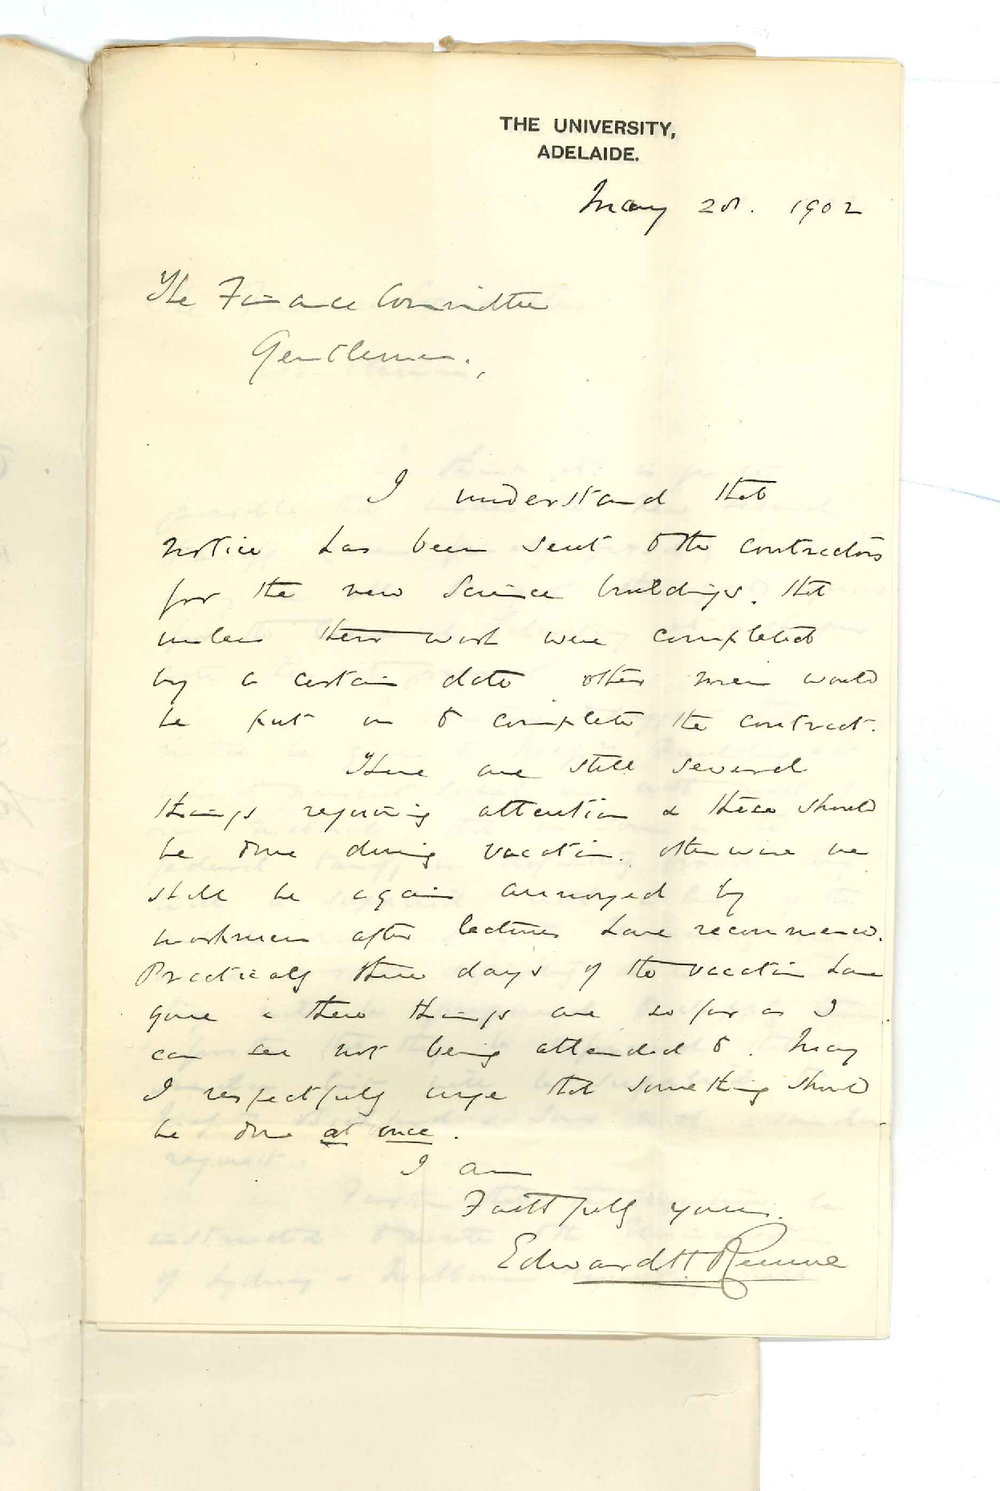 THE UNIVERSITY,
ADELAIDE.
May 28. 1902
The Finance Committee
Gentlemen,
I understand that
notice has been sent to the contractors
for the new Science buildings, that
unless their work were completed
by a certain date other men would
be put on to complete the contract.
There are still several
things requiring attention & these should
be done during vacation, otherwise we
shall be again annoyed by
workmen after lectures have recommenced.
Practically three days of the vacation have
gone & these things are so far as I
can see not being attended to. May
I respectfully urge that something should
be done at once.
I am
Faithfully yours.
Edward H. Rennie